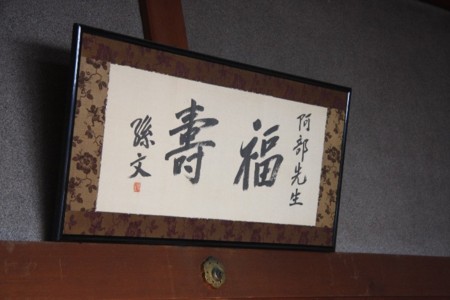 阿部先生
福壽
孫文